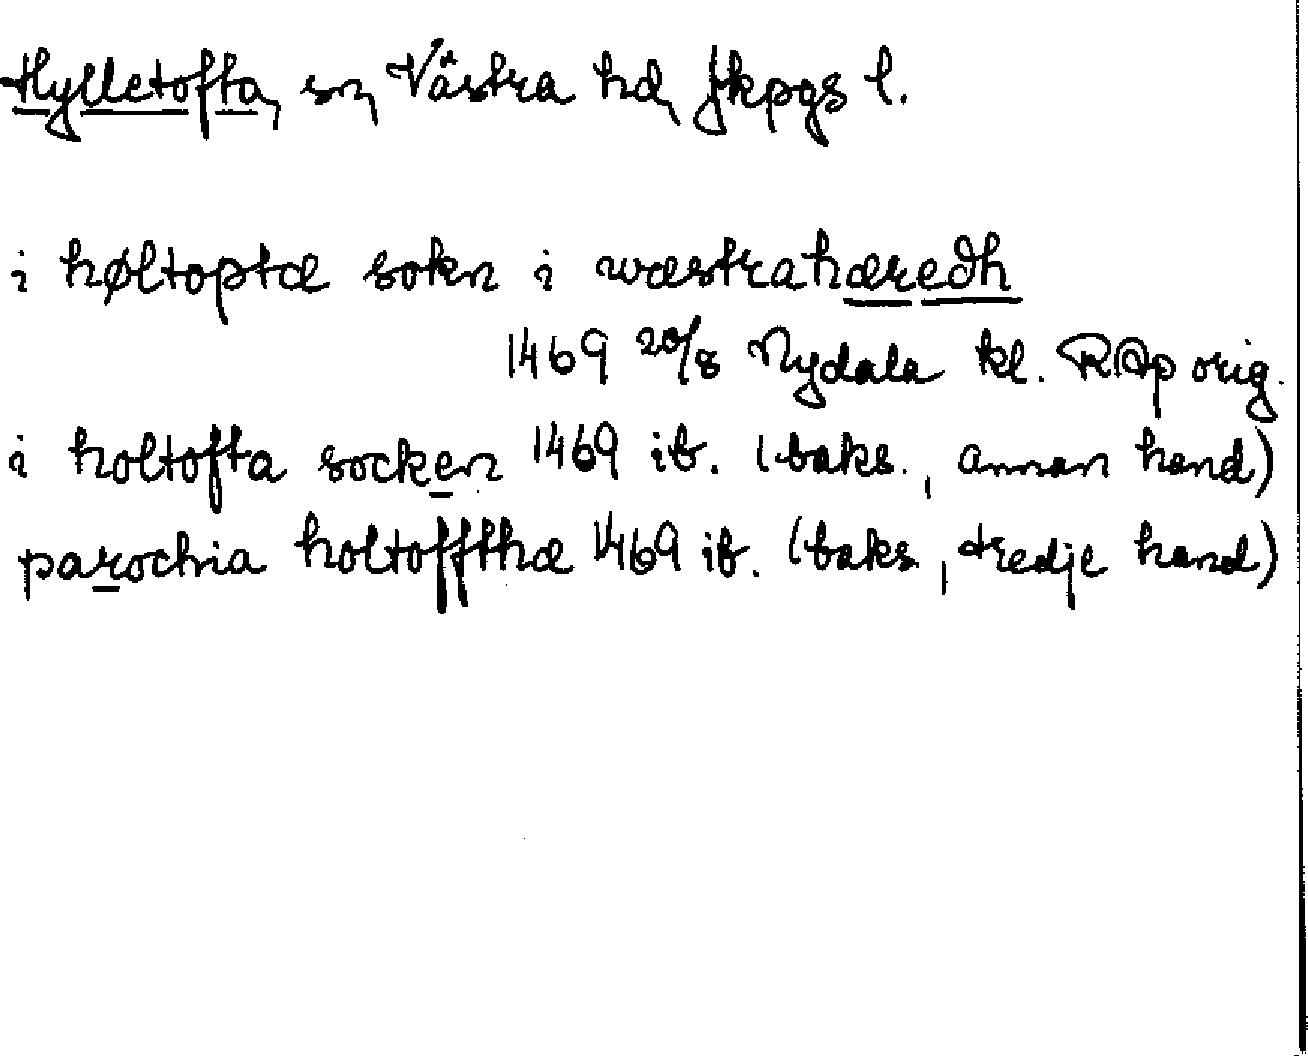 Hylletofta, sn, Västra hd, Jkpgs l.
i høltoptæ sokn i wæstrahæredh
1469 20/8 Nydala kl. RAp orig.
i holtofta socken 1469 ib. (baks., annan hand)
parochia holtoffthæ 1469 ib. (baks., tredje hand)